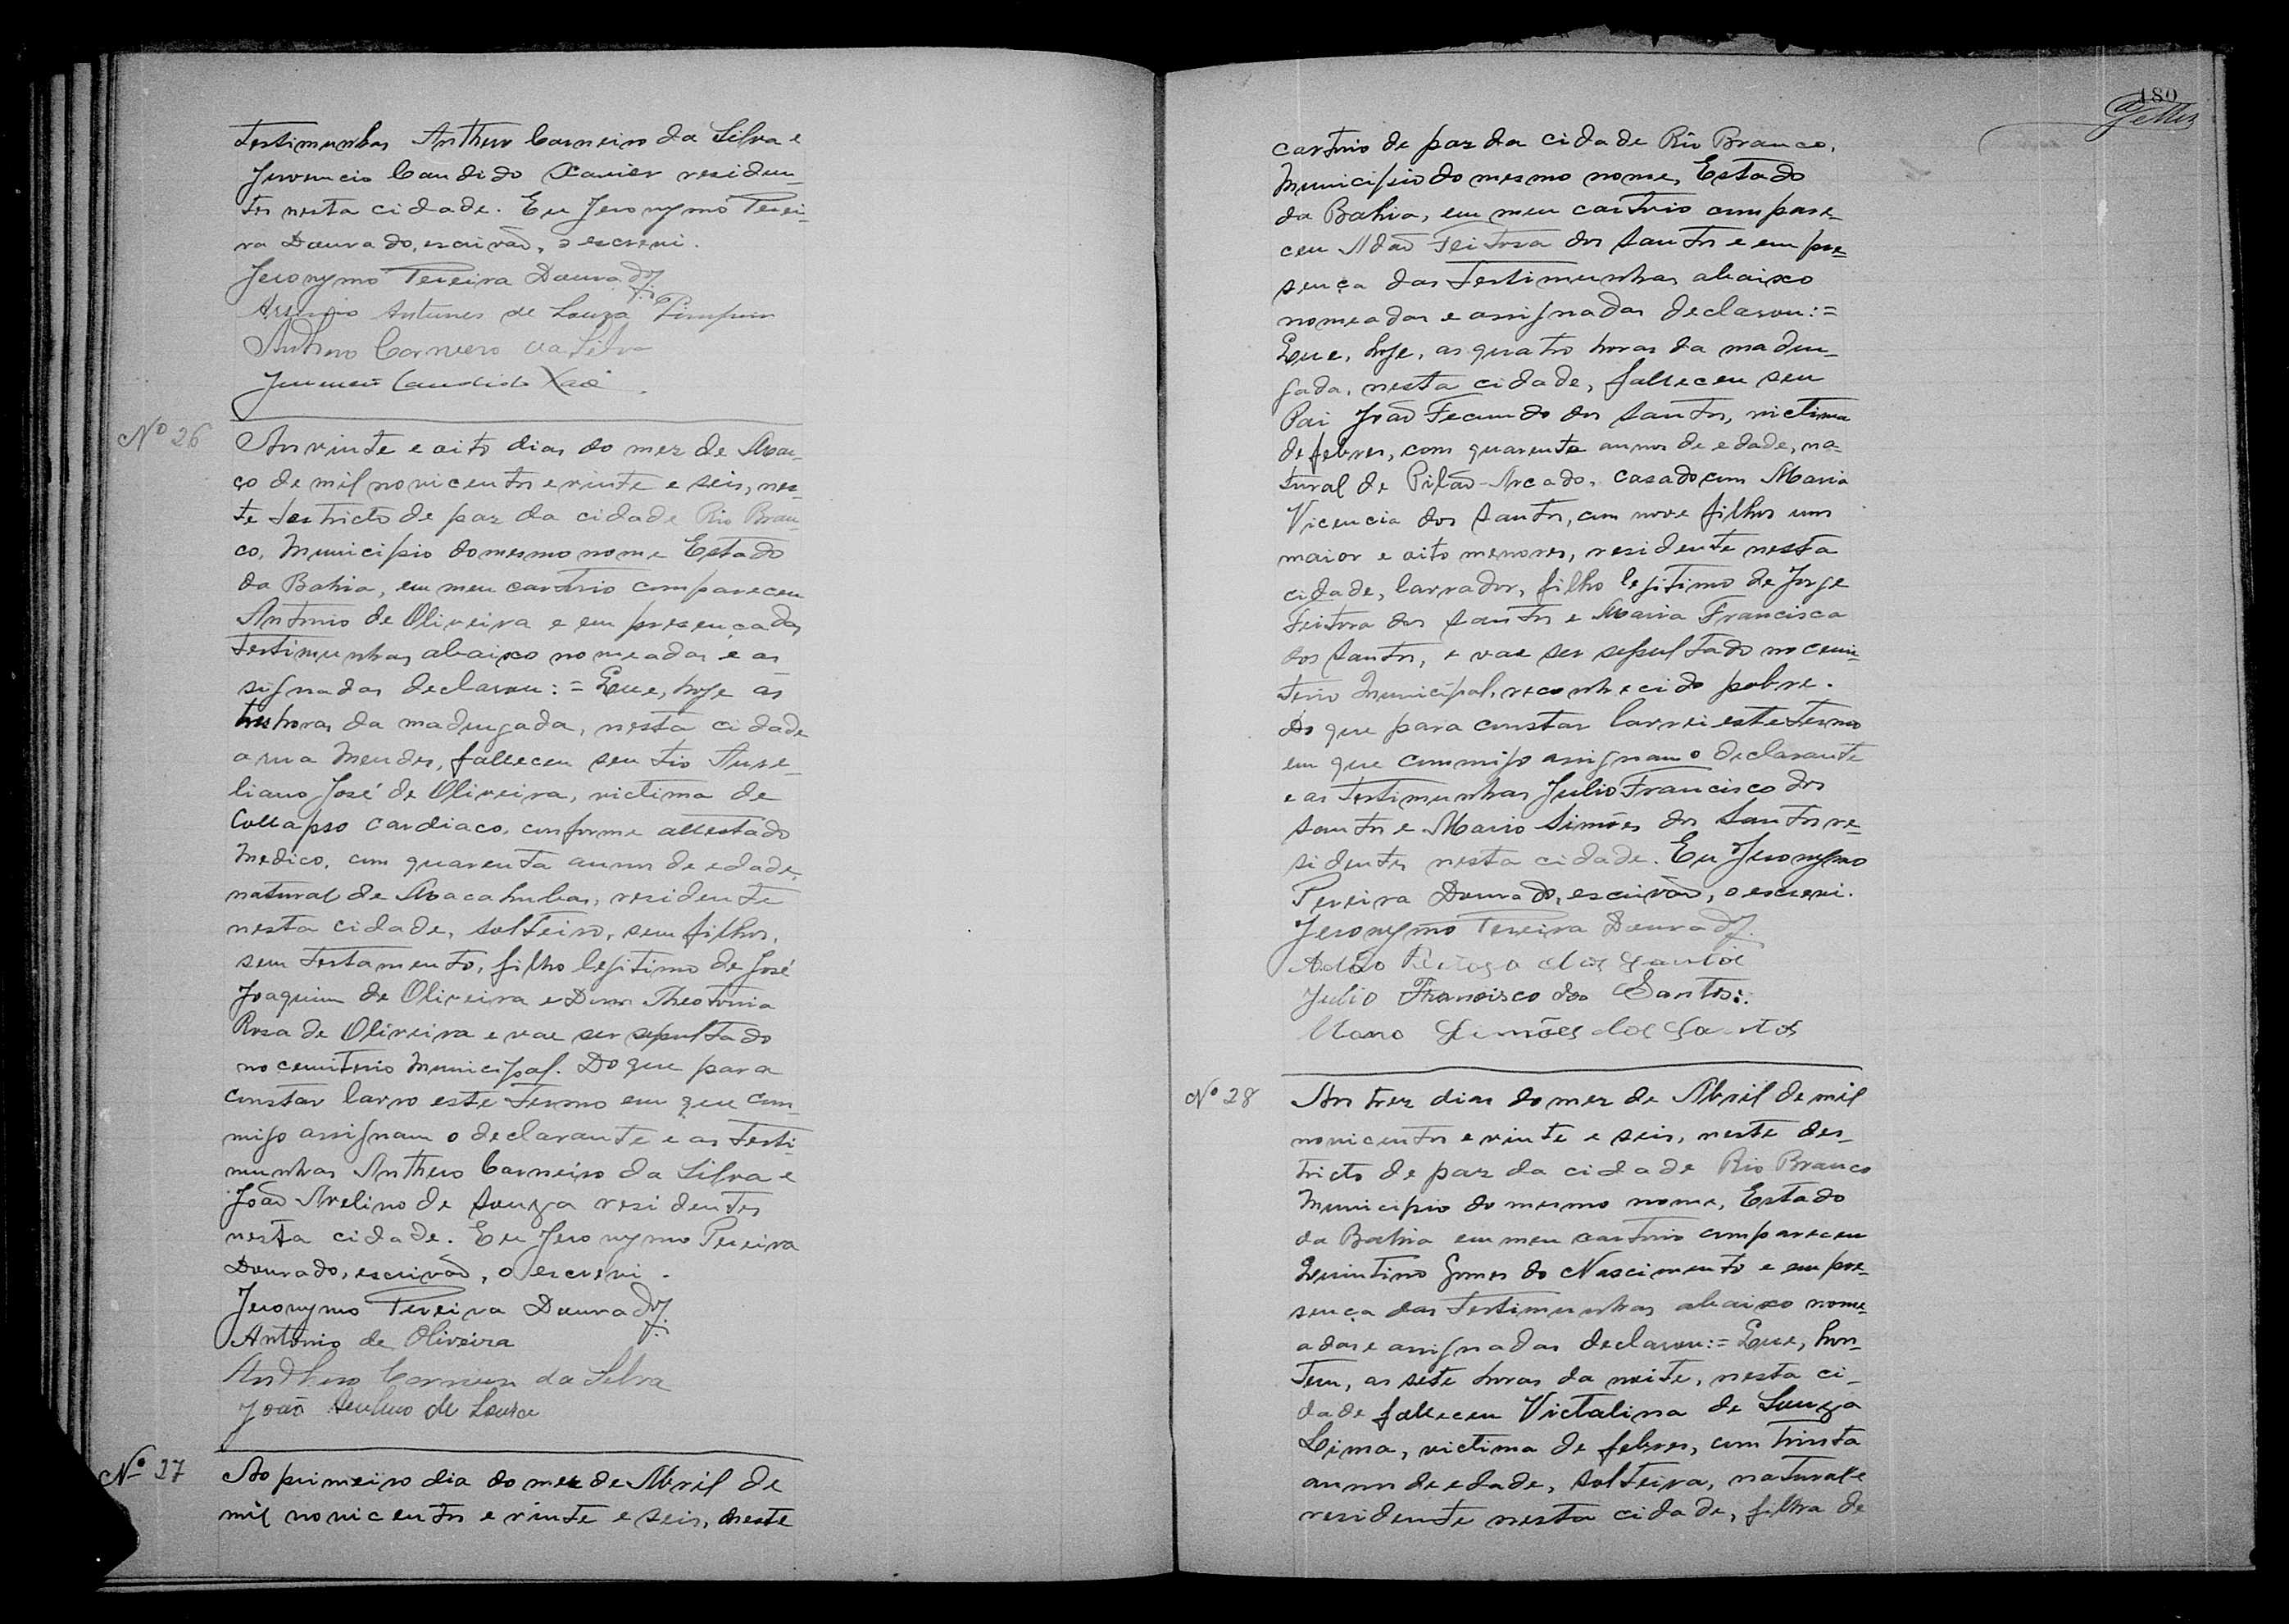 testimunhas Anthero Carneiro da Silva e
Juvencio Candido Xavier residen-
tes nesta cidade. Eu Jeronymo Perei-
ra Dourado, escrivão, o escrevi.
Jeronymo Pereira Dourado
Antunes de Souza
Anthero Carneiro da Silva
Candido
Nº 26
Aos vinte e oito dias do mez de Mar-
ço de mil novicentos e vinte e seis, nes-
te destricto de paz da cidade Rio Bran-
co, Municipio do mesmo nome Estado
da Bahia, em meu cartorio compareceu
Antonio de Oliveira e em presença das
testimunhas abaixo nomeadas e as
signadas declarou:= Que, hoje ás
tres horas da madrugada, nesta cidade
a rua Mendes, falleceu seu tio Aure-
liano José de Oliveira, victima de
Collapso cardiaco, conforme attestado
Medico, com quarenta annos de edade,
natural de Macahubas, residente
nesta cidade, solteiro, sem filhos,
sem testamento, filho legitimo de José
Joaquim de Oliveira e Dona Theotonia
Rosa de Oliveira e vae ser sepultado
no cemiterio Municipal. Do que para
constar lavro este termo em que com-
migo assignam o declarante e as testi-
munhas Anthero Carneiro da Silva e
João Avelino de Souza residentes
nesta cidade. Eu Jeronymo Pereira
Dourado, escrivão, o escrevi.
Jeronymo Pereira Dourado
Antonio de Oliveira
Anthero Carneiro da Silva
João Avelino de Souza
Nº 27
Ao primeiro dia do mez de Abril de
mil novicentos e vinte e seis, neste
180
cartorio de paz da cidade Rio Branco,
Municipio do mesmo nome, Estado
da Bahia, em meu cartorio compare-
ceu Adão Feitosa dos Santos e em pre-
sença das testimunhas abaixo
nomeadas e assignadas declarou:=
Que, hoje, as quatro horas da madru-
gada, nesta cidade, falleceu seu
Pai João Fecundo dos Santos, victima
de febres, com quarenta annos de edade, na-
tural de Pilão-Arcado, casado com Maria
Vicencia dos Santos, com nove filhos um
maior e oito menores, residente nesta
cidade, lavrador, filho legitimo de Jorge
Feitosa dos Santos e Maria Francisca
dos Santos, e vae ser sepultado no cemi-
terio Municipal, reconhecido pobre.
Do que para constar lavrei este termo
em que commigo assignam o declarante
e as testimunhas Julio Francisco dos
Santos e Mario Simões dos Santos re-
sidentes nesta cidade. Eu Jeronymo
Pereira Dourado, escrivão, o escrevi.
Jeronymo Pereira Dourado
Adão Feitosa dos Santos
Julio Francisco dos Santos
Mario Simões dos Santos
Nº 28
Aos trez dias do mez de Abril de mil
novicentos e vinte e seis, neste des-
tricto de paz da cidade Rio Branco
Municipio do mesmo nome, Estado
da Bahia em meu cartorio compareceu
Quintino Gomes do Nascimento e em pre-
sença das testimunhas abaixo nome-
adas e assignadas declarou:= Que, hon-
tem, as sete horas da noite, nesta ci-
dade falleceu Victalina de Souza
Lima, victima de febres, com trinta
annos de edade, solteira, natural e
residente nesta cidade, filha de